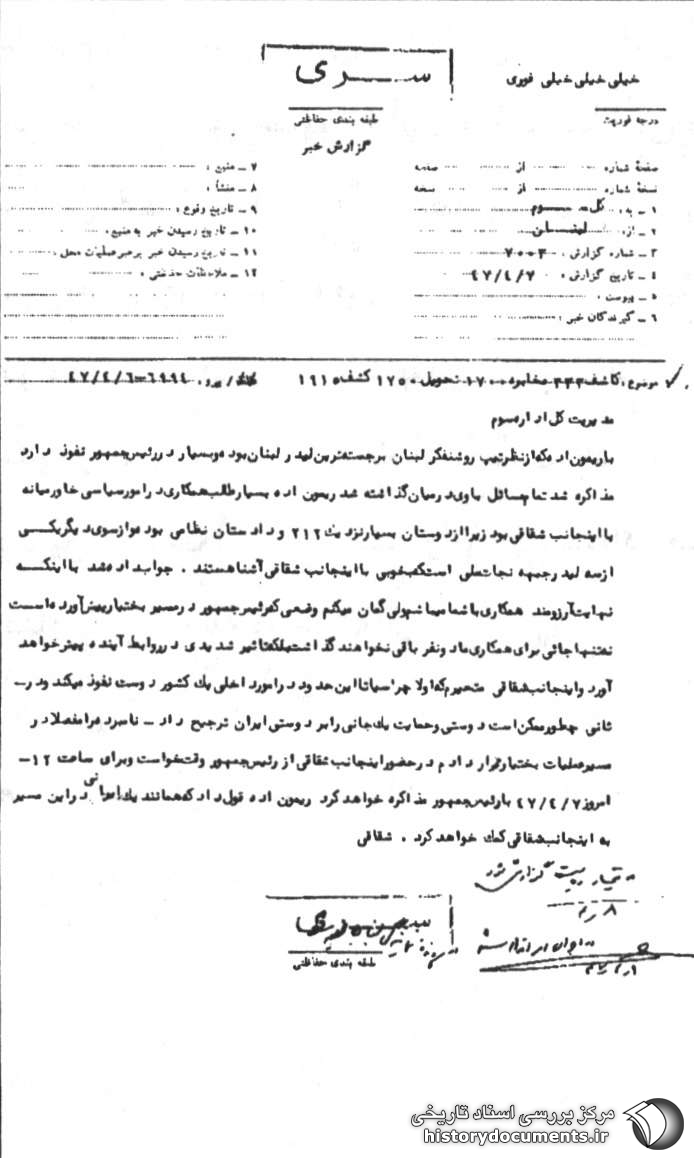 خیلی خیلی خیلی فوری
درجه فوریت
سری
طبقه بندی حفاظتی
گزارش خبر
صفحهٔ شماره از صفحه
نسخهٔ شماره از نسخه
۱ ـ به : کل سوم
۲ ـ از : لبنان
۳ ـ شماره گزارش : ۷۰۰۳
۴ ـ تاریخ گزارش : ۴۷/۴/۷
۵ ـ پیوست :
۶ ـ گیرندگان خبر :
۷ ـ منبع :
۸ ـ منشأ :
۹ ـ تاریخ وقوع :
۱۰ ـ تاریخ رسیدن خبر به منبع :
۱۱ ـ تاریخ رسیدن خبر برهبر عملیات محل :
۱۲ ـ ملاحظات حفاظتی :
موضوع : کاشف ۳۳۳ مخابره ۱۷۰۰ تحویل ۱۷۵۰ کشف ۱۹۱۵ ۶۹۹۴-۴۷/۴/۶
مدیریت کل اداره سوم
باریمون اده که از نظر تیپ روشنفکر لبنان برجسته ترین لیدر لبنان بوده و بسیار در رئیس جمهور نفوذ دارد
مذاکره شد تمام مسائل با وی در میان گذاشته شد ریمون اده بسیار طالب همکاری در امور سیاسی خاورمیانه
با اینجانب شقاقی بود زیرا از دوستان بسیار نزدیک ۲۱۲ و دادستان نظامی بوده و از سوی دیگر یکی
از سه لیدر جبهه نجات ملی است که بخوبی با اینجانب شقاقی آشنا هستند . جواب داده شد با اینکه
نهایت آرزومند همکاری با شما میباشم ولی گمان میکنم وضعی که رئیس جمهور در مسیر بختیار پیش آورده است
نه تنها جائی برای همکاری ما دو نفر باقی نخواهند گذاشت بلکه تاثیر شدیدی در روابط آینده ببار خواهد
آورد و اینجانب شقاقی متحیرم که اولا چرا سیا تا این حدود در امور داخلی یک کشور دوست نفوذ میکند و در ـ
ثانی چطور ممکن است دوستی و حمایت یک جانی را بر دوستی ایران ترجیح داد ـ نامبرده را مفصلا در
مسیر عملیات بختیار قرار دادم در حضور اینجانب شقاقی از رئیس جمهور وقت خواست و برای ساعت ۱۲ ـ
امروز ۴۷/۴/۷ با رئیس جمهور مذاکره خواهد کرد ریمون اده قول داد که همانند یک ایرانی در این مسیر
به اینجانب شقاقی کمک خواهد کرد . شقاقی
گزارش شود
۸
طبقه بندی حفاظتی
مرکز بررسی اسناد تاریخی
historydocuments.ir